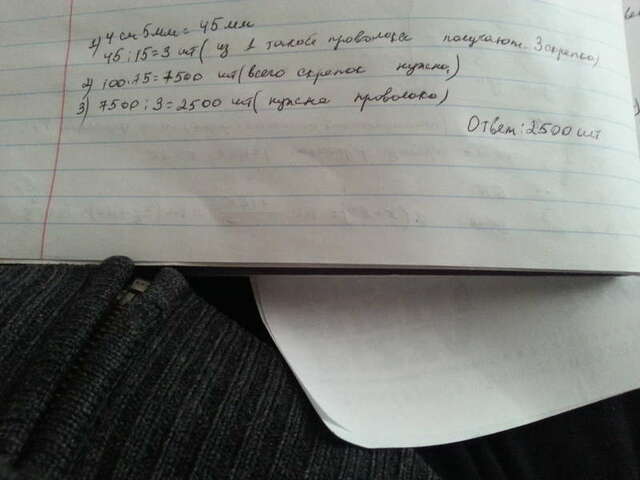 1) 4 см 5 мм = 45 мм
45 : 15 = 3 шт ( из 1 такой проволоки получают 3 скрепки)
2) 100 · 75 = 7500 шт ( всего скрепок нужно)
3) 7500 : 3 = 2500 шт ( нужно проволоко)
Ответ : 2500 шт